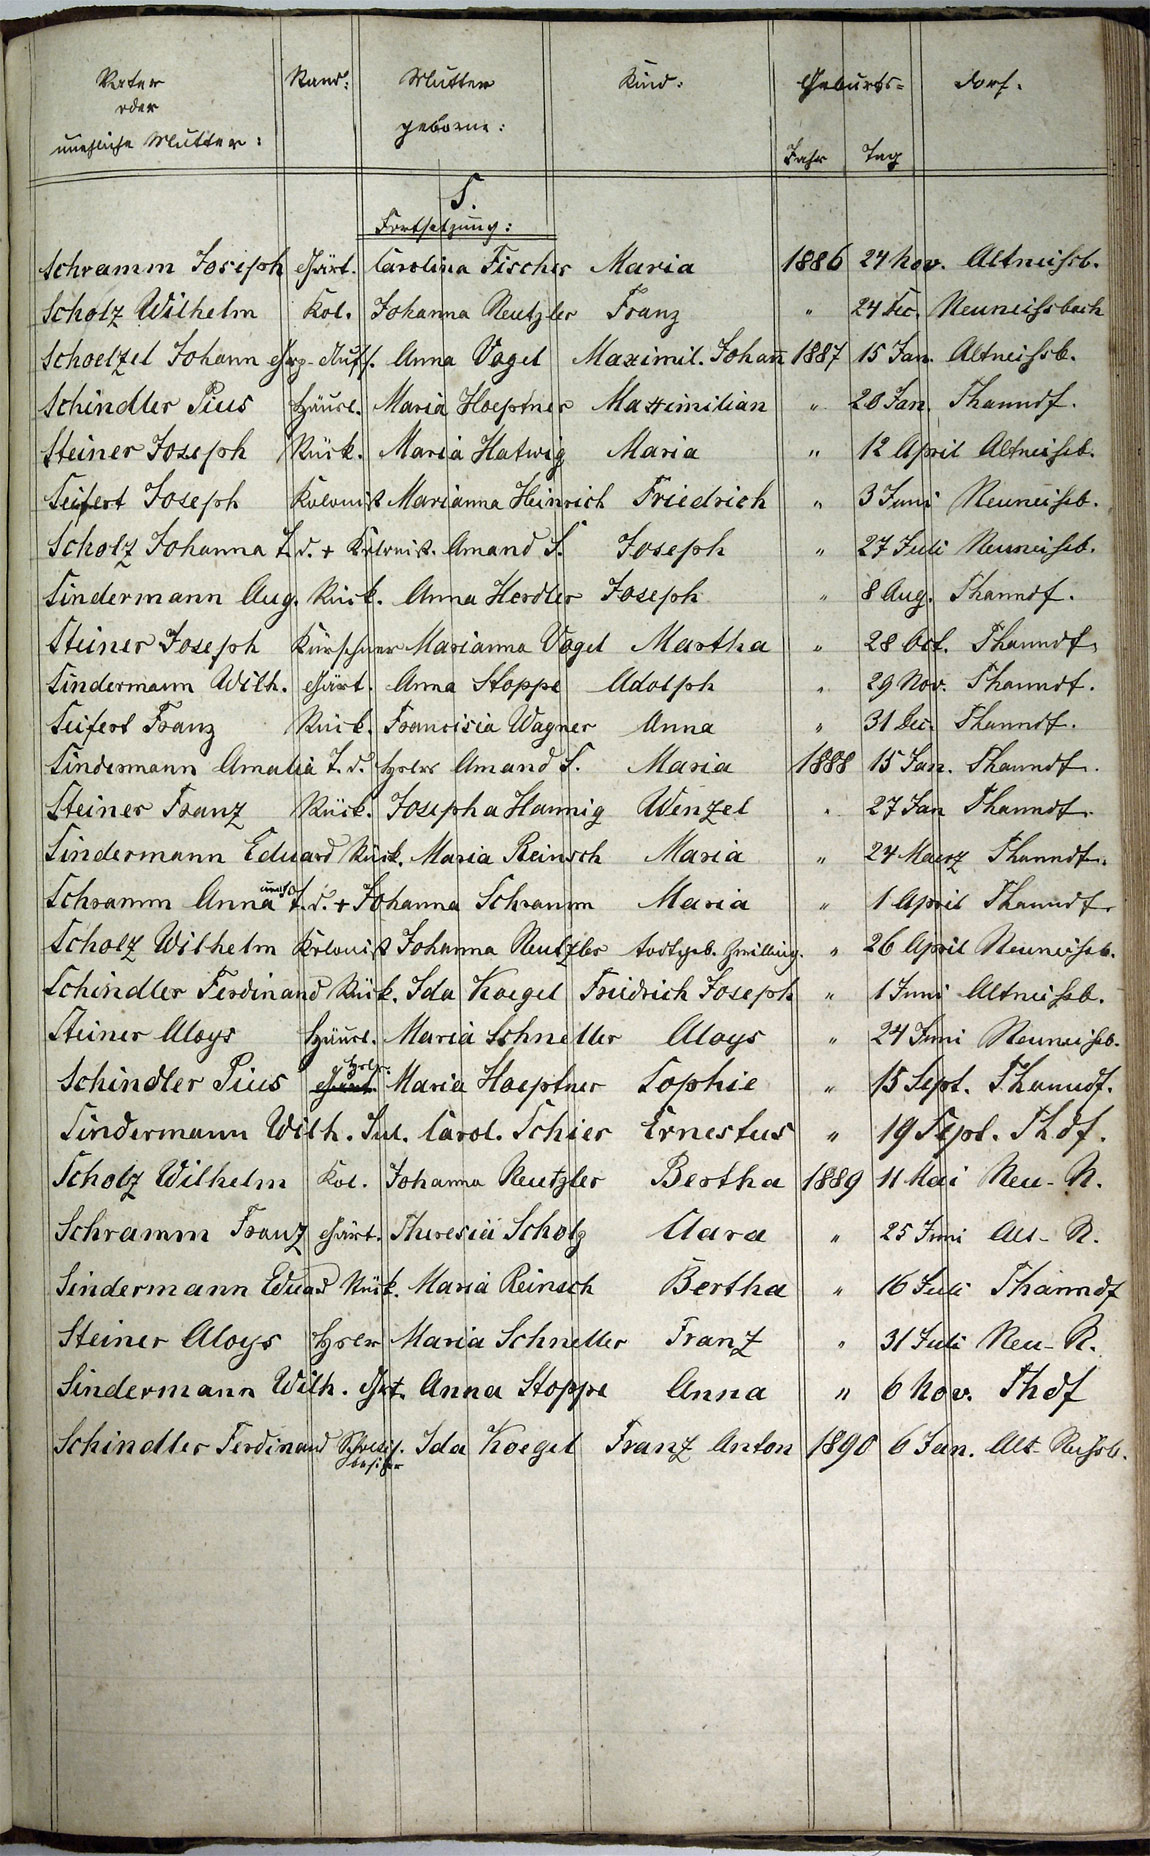 Vater Stand: Mutter Kind: Geburts= Dorf.
oder geborne:
uneheliche Mutter: Jahr Tag
S.
Fortsetzung:
Schramm Joseph Gärt. Carolina Fischer Maria 1886 24 Nov. Altneissb.
Scholz Wilhelm Kol. Johanna Reutzler Franz " 24 Dec. Neuneissbach
Schoelzel Johann Anna Vogel Maximil. Johann 1887 15 Jan. Altneissb.
Schindler Pius Häusl. Maria Hoeptner Maximilian " 20 Jan. Thanndf.
Steiner Joseph Rück. Maria Hatwig Maria " 12 April Altneissb.
Seifert Joseph Kolonist Marianna Heinrich Friedrich " 3 Juni Neuneissb.
Scholz Johanna T. d. + Kolonist. Amand S. Joseph " 27 Juli Neuneissb.
Sindermann Aug. Rück. Anna Herdler Joseph " 8 Aug. Thanndf.
Steiner Joseph Kürschner Marianna Vogel Martha " 28 Oct. Thanndf.
Sindermann Wilh. Gärt. Anna Stoppe Adolph " 29 Nov. Thanndf.
Seifert Franz Rück. Francisia Wagner Anna " 31 Dec. Thanndf.
Sindermann Amalia T. d. Hslers Amand S. Maria 1888 15 Jan. Thanndf.
Steiner Franz Rück. Josepha Hannig Wenzel " 27 Jan Thanndf.
Sindermann Eduard Rück. Maria Reinsch Maria " 24 Maerz Thanndf.
Schramm Anna T. d. + Johanna Schramm Maria " 1 April Thanndf.
Scholz Wilhelm Kolonist Johanna Reutzler todtgeb. Zwilling. " 26 April Neuneissb.
Schindler Ferdinand Rück. Ida Koegel Friedrich Joseph " 1 Juni Altneissb.
Steiner Aloys Häusl. Maria Schneller Aloys " 24 Juni Neuneissb.
Schindler Pius Hsler. Gärt. Maria Hoeptner Sophie " 15 Sept. Thanndf.
Sindermann Wilh. Inl. Carol. Schier Ernestus " 19 Sept. Thdf.
Scholz Wilhelm Kol. Johanna Reutzler Bertha 1889 11 Mai Neu-N.
Schramm Franz Gärt. Theresia Scholz Clara " 25 Juni Alt-N.
Sindermann Eduard Rück. Maria Reinsch Bertha " 16 Juli Thanndf
Steiner Aloys Hsler Maria Schneller Franz " 31 Juli Neu-N.
Sindermann Wilh. Grt. Anna Stoppe Anna " 6 Nov. Thdf
Schindler Ferdinand Ida Koegel Franz Anton 1890 6 Jan. Alt-Neissb.
besitzer